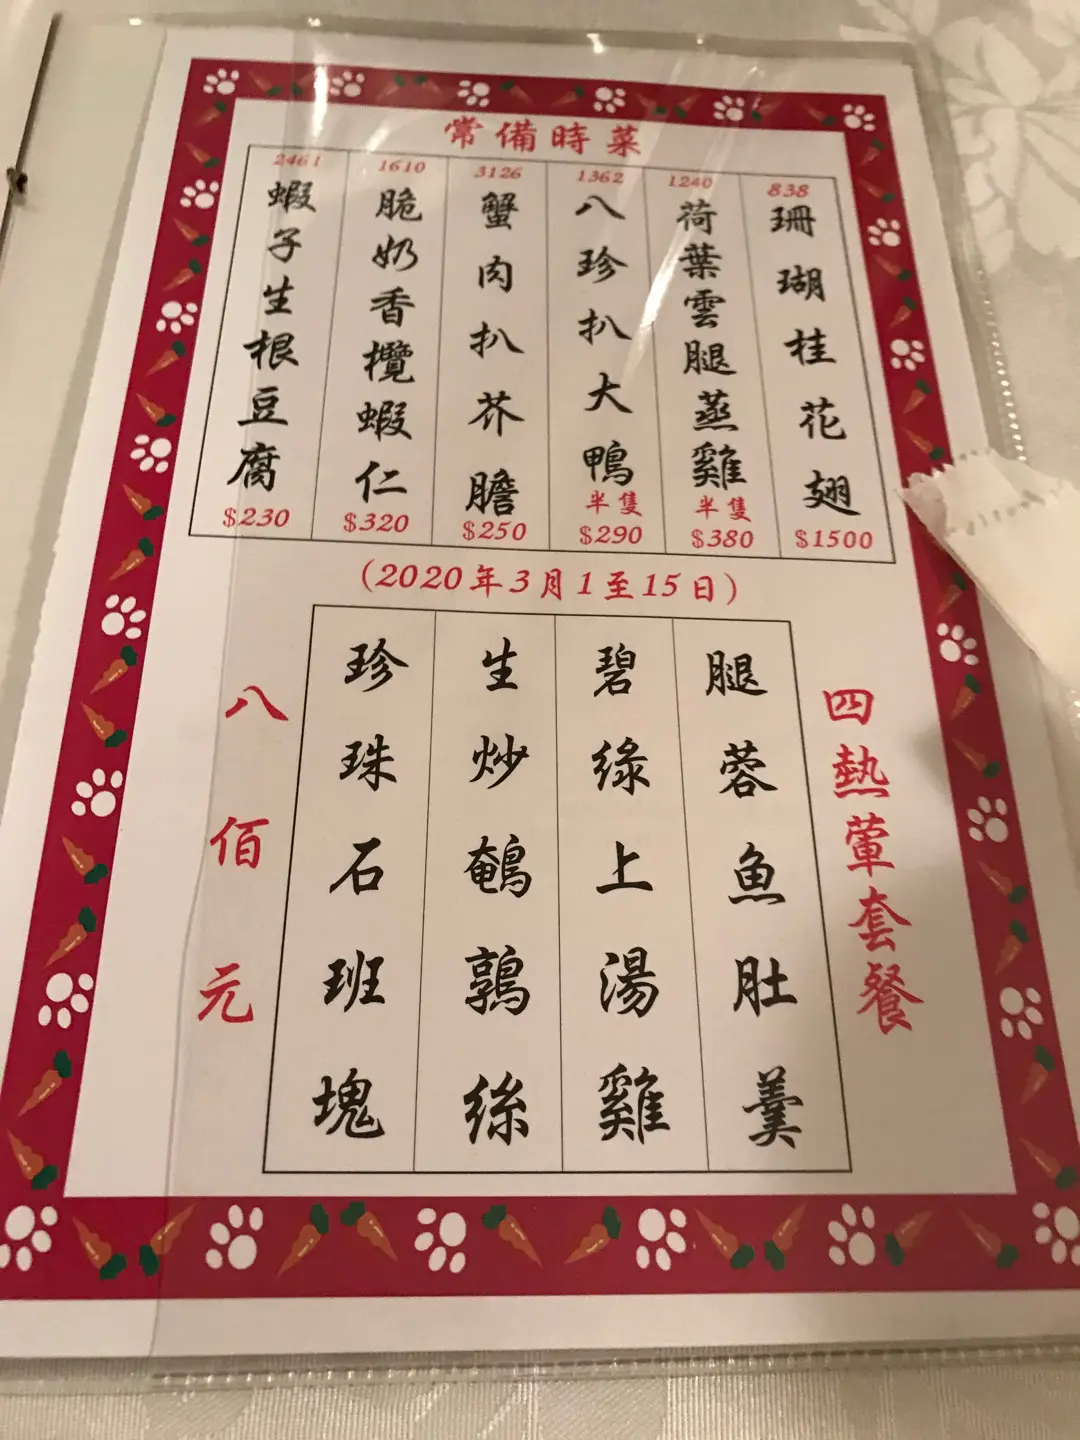 常備時菜
838
珊瑚桂花翅
$1500
1240
荷葉雲腿蒸雞
半隻
$380
1362
八珍扒大鴨
半隻
$290
3126
蟹肉扒芥膽
$250
1610
脆奶香欖蝦仁
$320
2461
蝦子生根豆腐
$230
(2020年3月1至15日)
四熱葷套餐
腿蓉魚肚羹
碧綠上湯雞
生炒鵪鶉絲
珍珠石班塊
八佰元